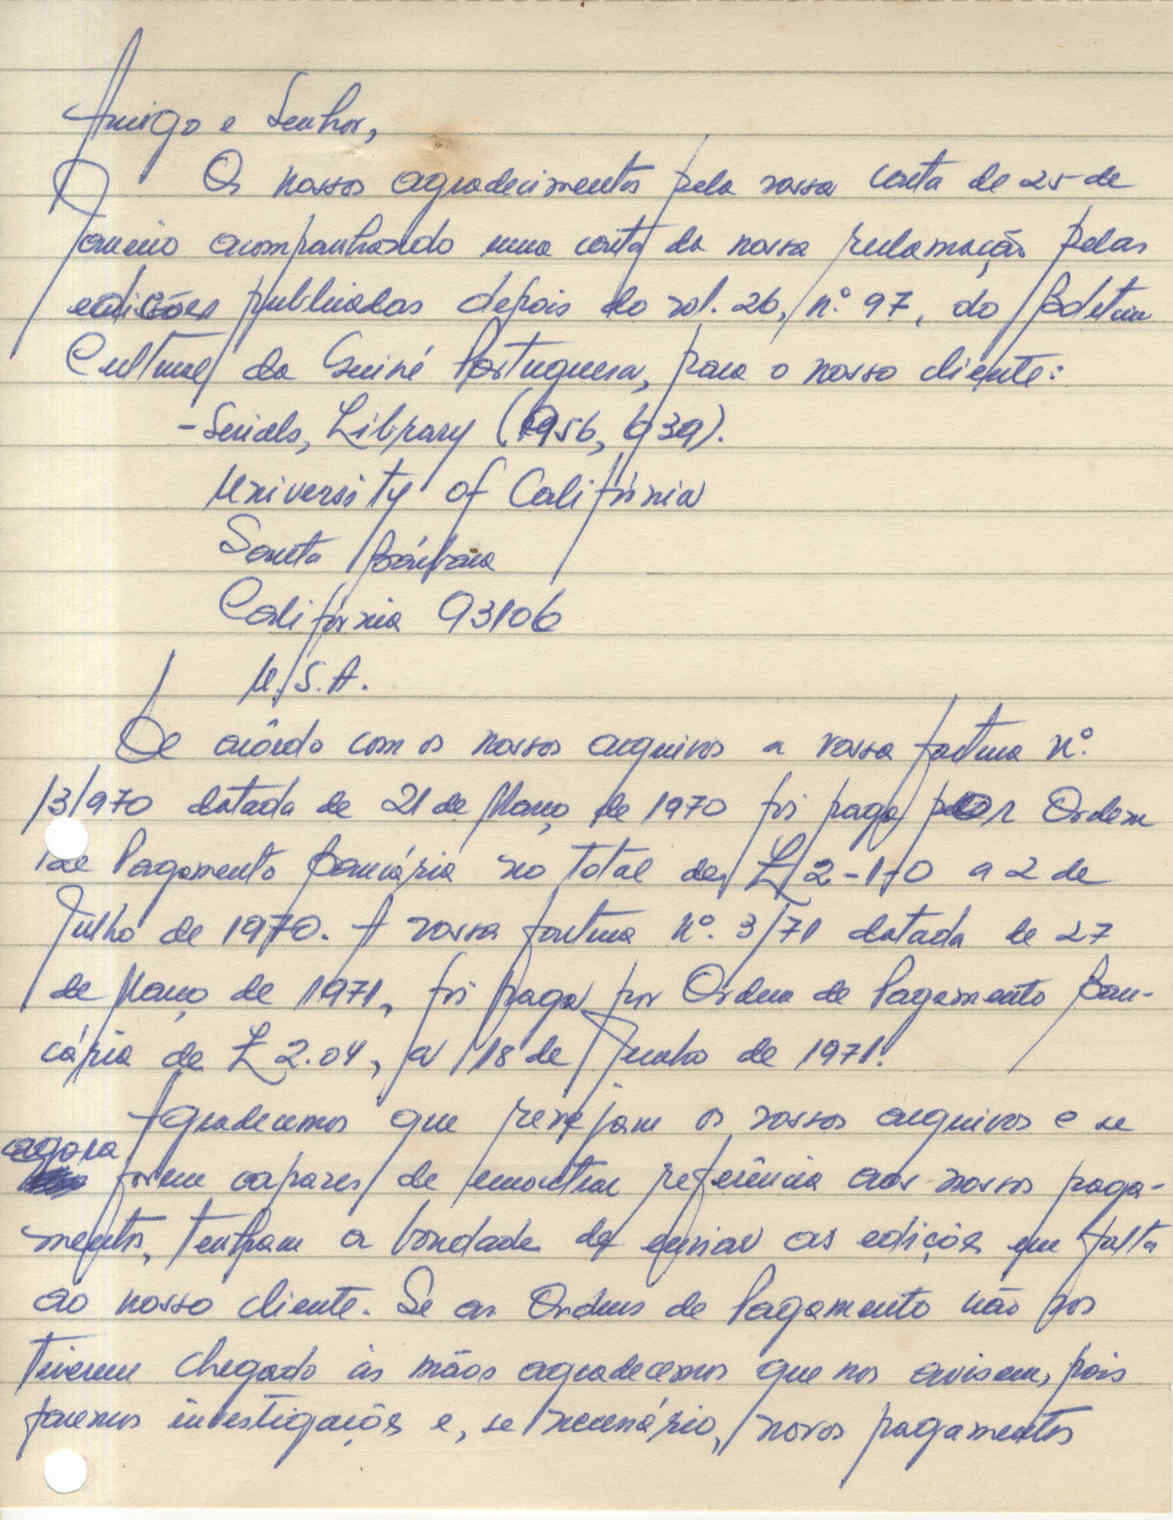 Amigo e Senhor,
Os nossos agradecimentos pela vossa carta de 25 de
Janeiro acompanhando uma carta da nossa reclamação pelas
edições publicadas depois do vol. 26, nº. 97, do Boletim
Cultural da Guiné Portuguesa, para o nosso cliente:
- Serials, Library (1956, 639).
University of Califórnia
Santa Bárbara
Califórnia 93106
U.S.A.
De acôrdo com os nossos arquivos a vossa factura nº.
13/970 datada de 21 de Março de 1970 foi paga por Ordem
de Pagamento Bancária no total de £ 2-1-0 a 2 de
Julho de 1970. A vossa factura nº. 3/71 datada de 27
de Março de 1971, foi paga por Ordem de Pagamento Ban-
cária de £ 2.04, a 18 de Junho de 1971.
Agradecemos que revejam os vossos arquivos e se
agora forem capazes de encontrar referência aos nossos paga-
mentos, tenham a bondade de enviar as edições em falta
ao nosso cliente. Se as Ordens de Pagamento não vos
tiverem chegado às mãos agradecemos que nos avisem, pois
faremos investigações e, se necessário, novos pagamentos